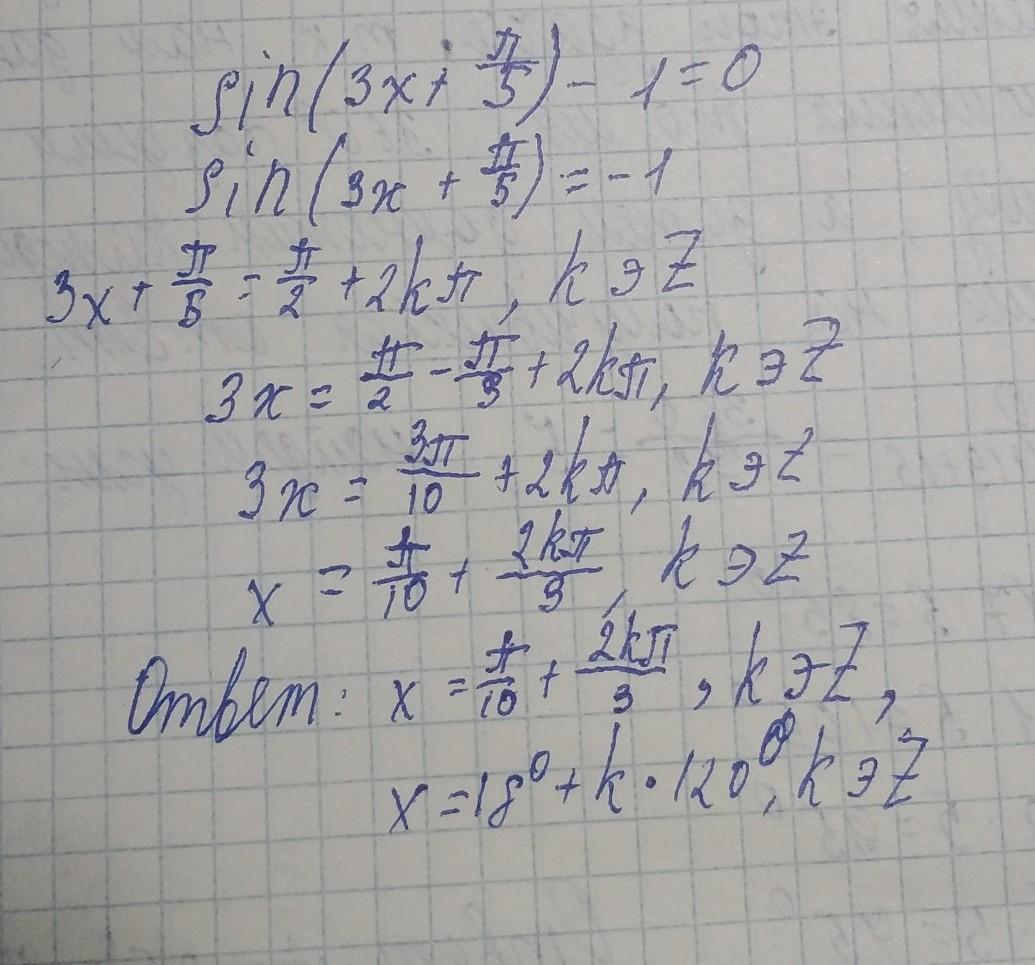 sin(3x + π/5) - 1 = 0
sin(3x + π/5) = -1
3x + π/5 = π/2 + 2kπ, k э Z
3x = π/2 - π/3 + 2kπ, k э Z
3x = 3π/10 + 2kπ, k э Z
x = π/10 + 2kπ/3, k э Z
Ответ: x = π/10 + 2kπ/3, k э Z,
x = 18° + k · 120°, k э Z